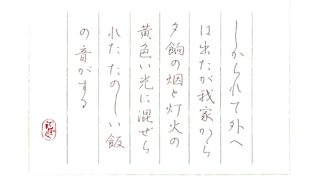 しかられて外へ
は出たが我家から
夕餉の烟と灯火の
黄色い光に混ぜら
れたたのしい飯
の音がする